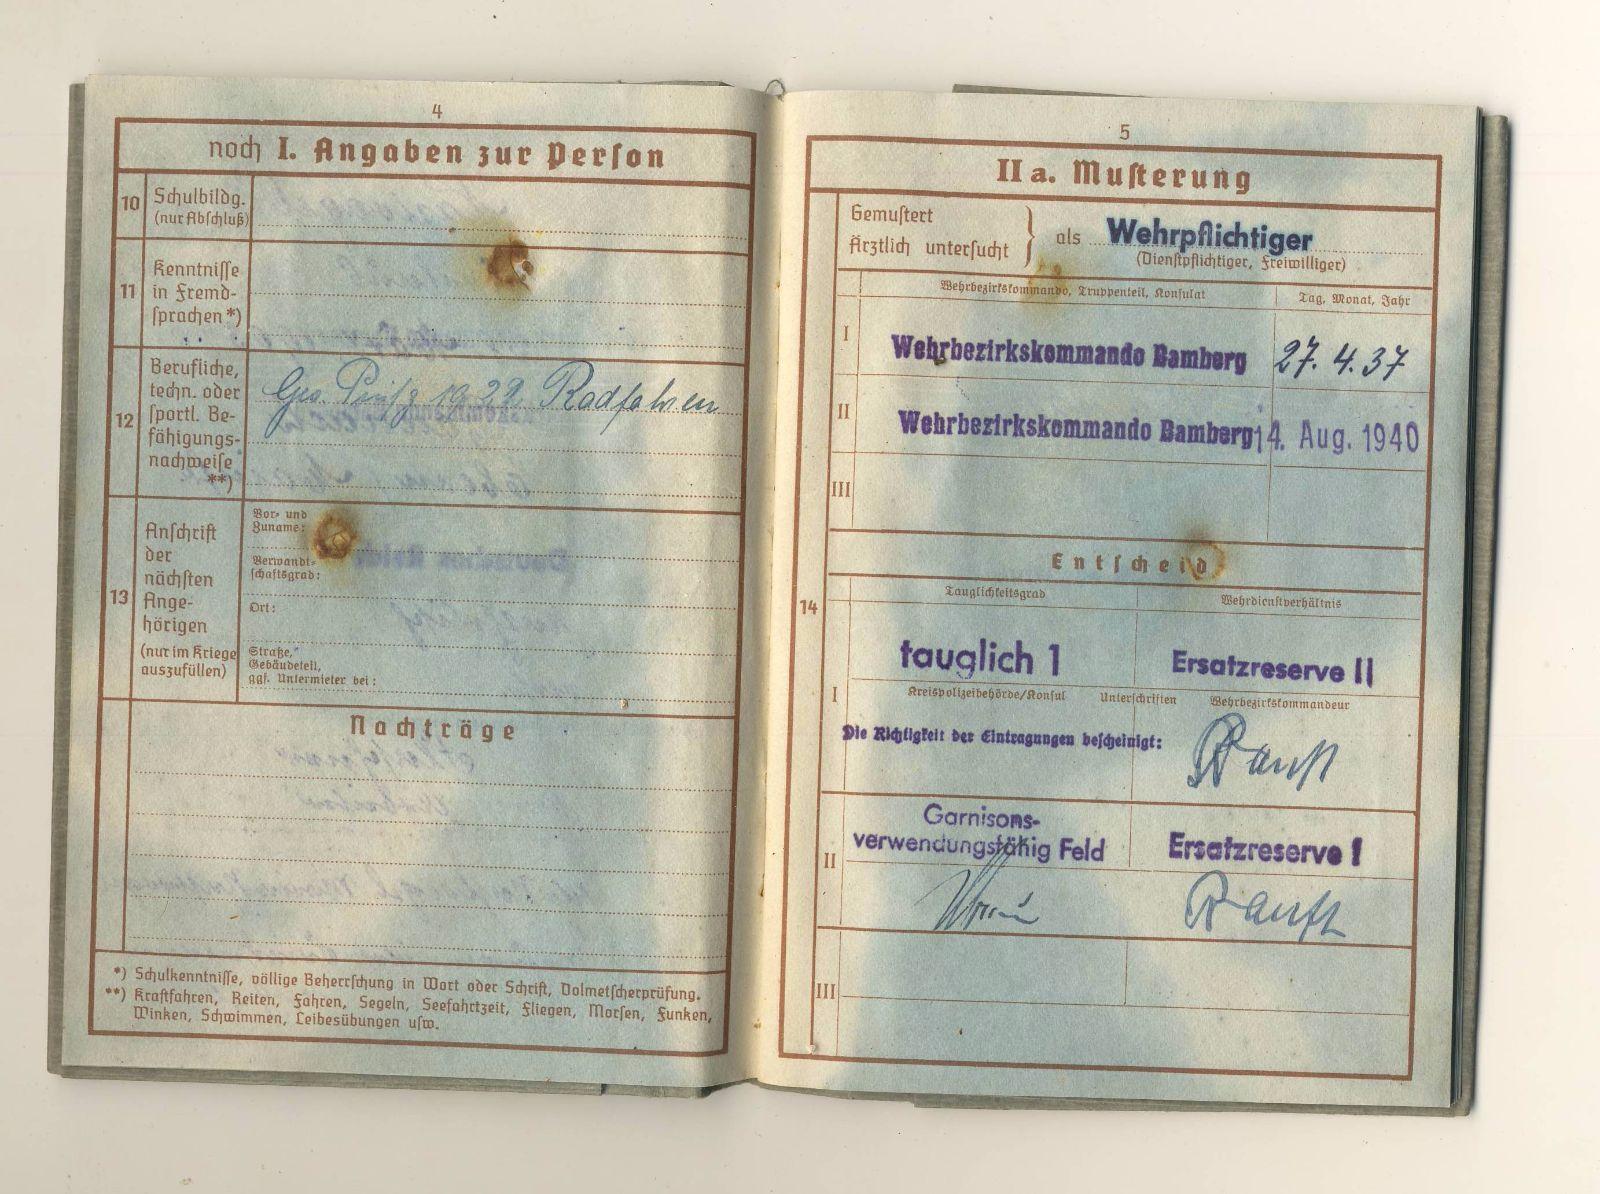 4
noch I. Angaben zur Person
10
Schulbildg.
(nur Abschluß)
11
Kenntnisse
in Fremd-
sprachen *)
12
Berufliche,
techn. oder
sportl. Be-
fähigungs-
nachweise
**)
1922 Radfahren
13
Anschrift
der
nächsten
Ange-
hörigen
(nur im Kriege
auszufüllen)
Vor- und
Zuname:
Verwandt-
schaftsgrad:
Ort:
Straße,
Gebäudeteil,
ggf. Untermieter bei:
Nachträge
*) Schulkenntnisse, völlige Beherrschung in Wort oder Schrift, Dolmetscherprüfung.
**) Kraftfahren, Reiten, Fahren, Segeln, Seefahrtzeit, Fliegen, Morsen, Funken,
Winken, Schwimmen, Leibesübungen usw.
5
II a. Musterung
Gemustert
Ärztlich untersucht
als Wehrpflichtiger
(Dienstpflichtiger, Freiwilliger)
Wehrbezirkskommando, Truppenteil, Konsulat
Tag, Monat, Jahr
I
Wehrbezirkskommando Bamberg 27.4.37
II
Wehrbezirkskommando Bamberg 14. Aug. 1940
III
14
Entscheid
Tauglichkeitsgrad
Wehrdienstverhältnis
tauglich 1
Ersatzreserve II
I
Kreispolizeibehörde/Konsul Unterschriften Wehrbezirkskommandeur
Die Richtigkeit der Eintragungen bescheinigt:
II
Garnisons-
verwendungsfähig Feld
Ersatzreserve I
III